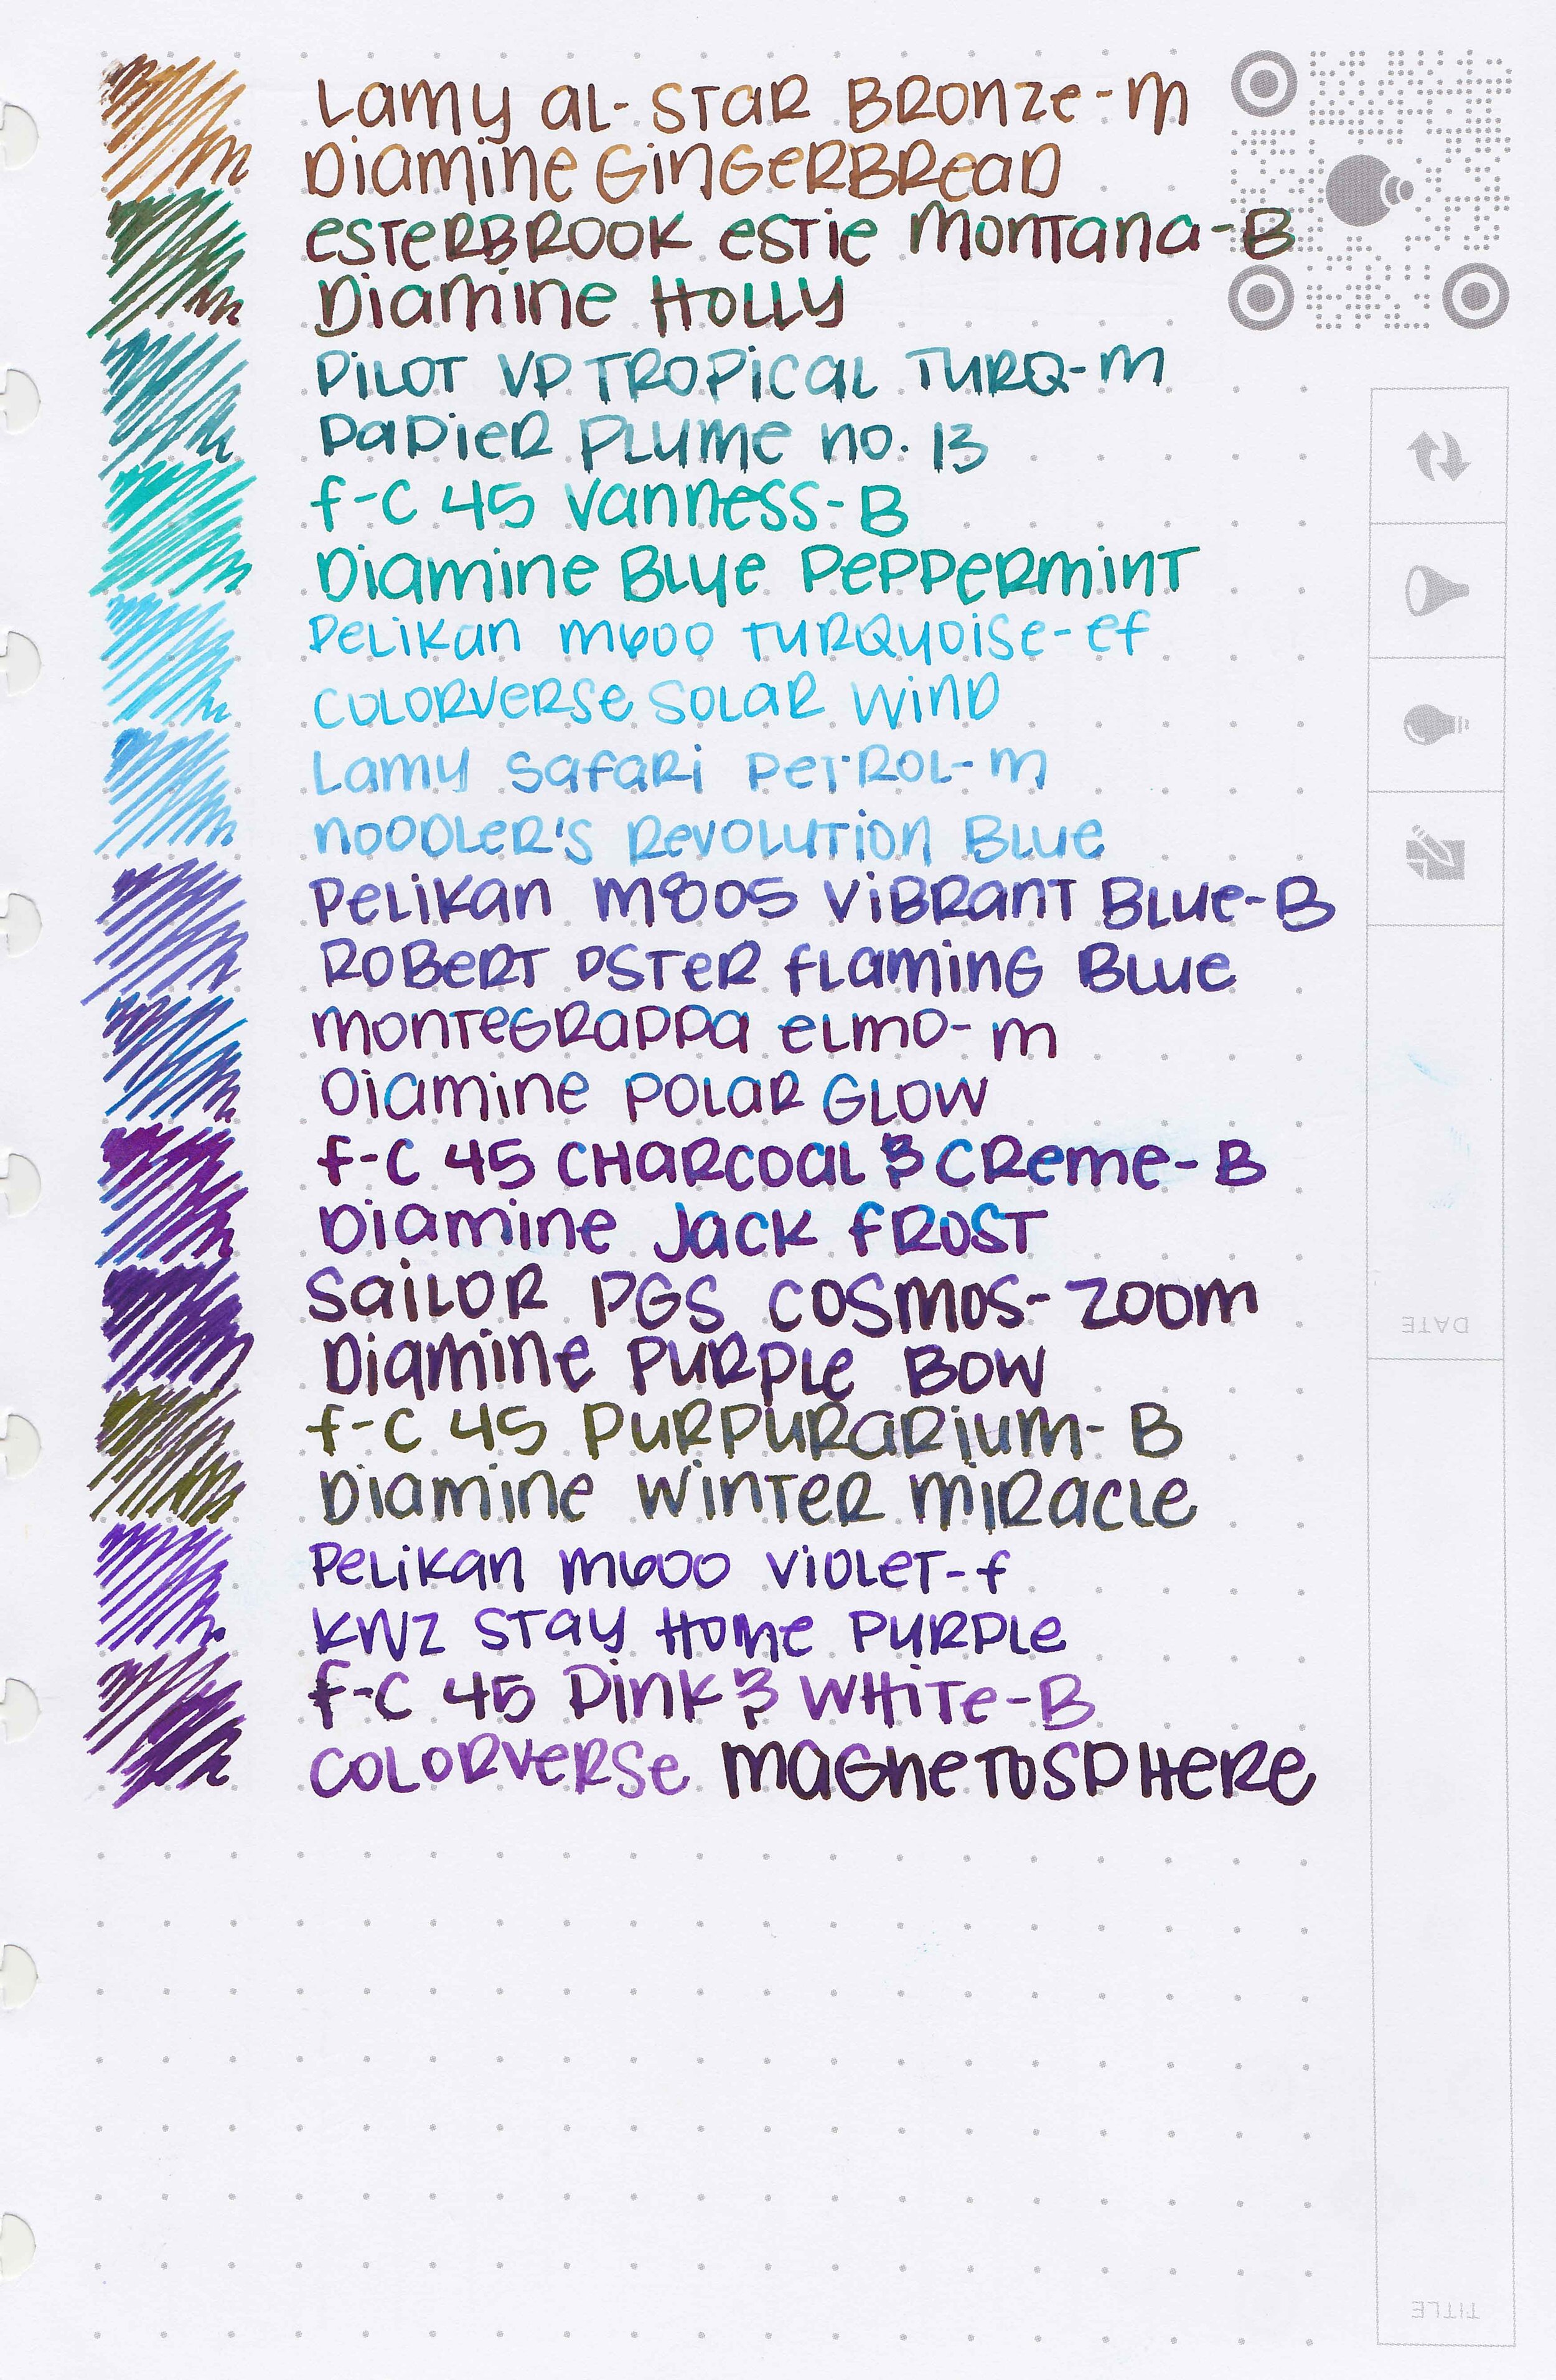 Lamy al-Star Bronze-m
Diamine Gingerbread
esterbrook estie montana-B
Diamine Holly
Pilot VP Tropical Turq-m
Papier Plume no. 13
f-c 45 Vanness-B
Diamine Blue Peppermint
Pelikan m600 Turquoise-ef
Colorverse Solar Wind
Lamy Safari Petrol-m
noodler's Revolution Blue
Pelikan m805 Vibrant Blue-B
Robert Oster flaming Blue
montegrappa elmo-m
Diamine Polar Glow
f-c 45 Charcoal & Creme-B
Diamine Jack frost
Sailor PGS Cosmos-Zoom
Diamine Purple Bow
f-c 45 Purpurarium-B
Diamine Winter miracle
Pelikan m600 Violet-f
KWZ Stay Home Purple
f-c 45 Pink & White-B
Colorverse magnetosphere
DATE
TITLE